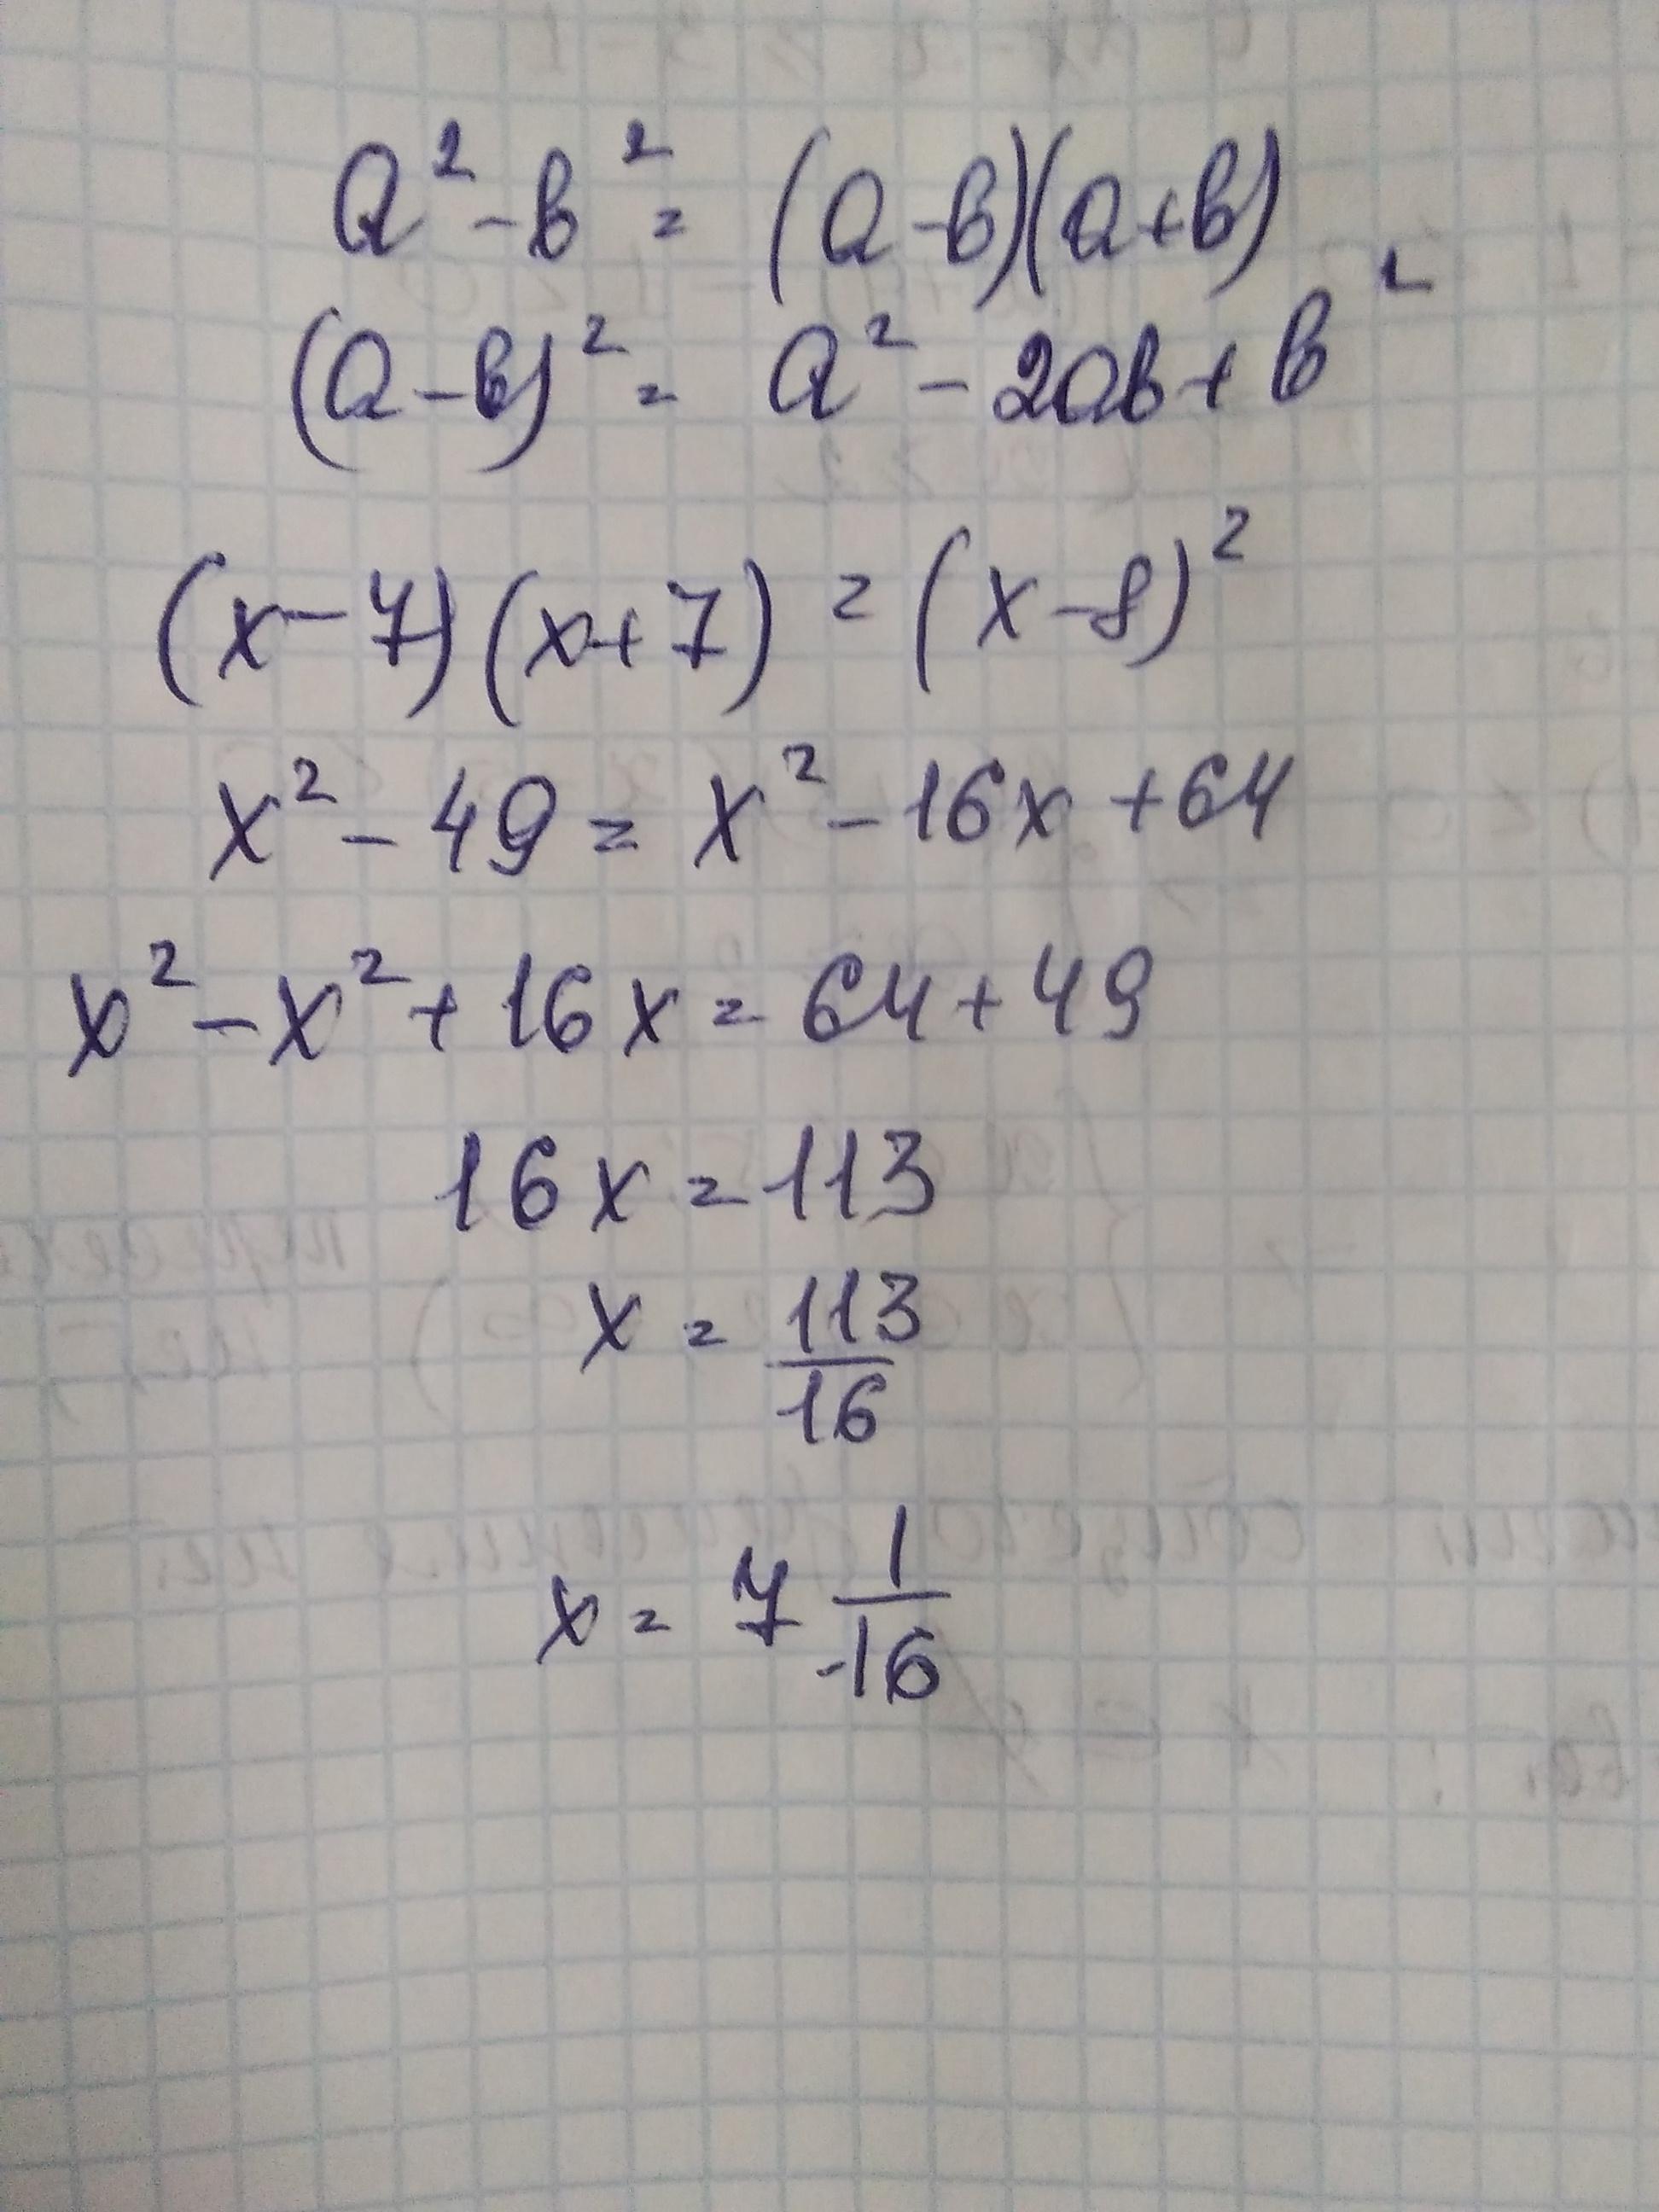 a² - b² = (a - b)(a + b)
(a - b)² = a² - 2ab + b²
(x - 7)(x + 7) = (x - 8)²
x² - 49 = x² - 16x + 64
x² - x² + 16x = 64 + 49
16x = 113
x = 113/16
x = 7 1/16